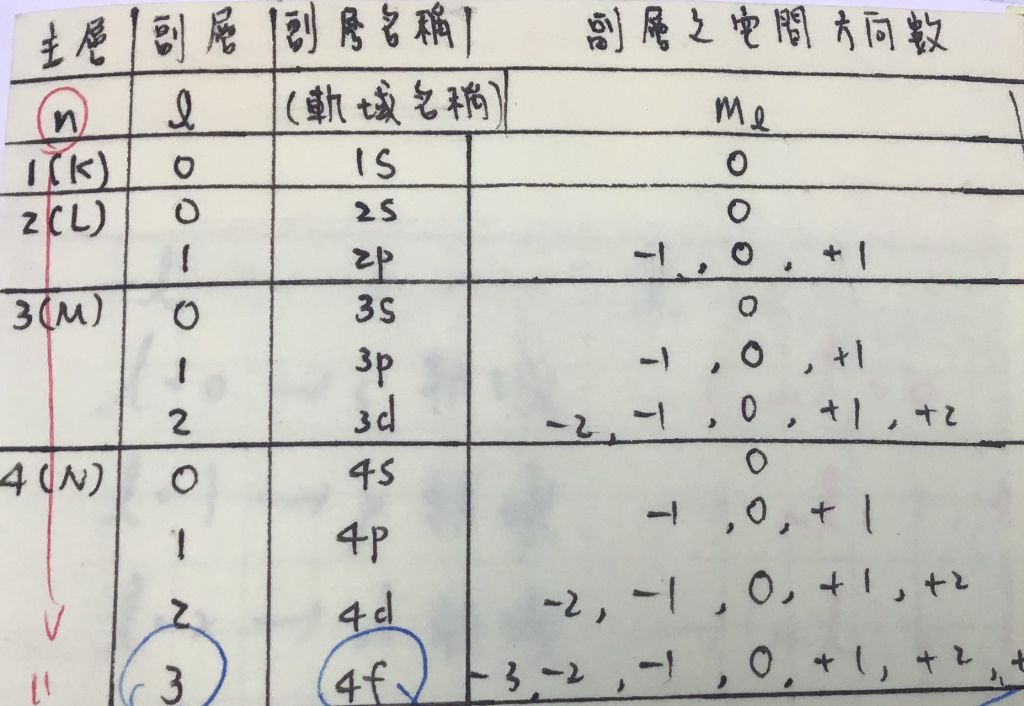 主層 副層 副層名稱 副層之空間方向數
n l (軌域名稱) ml
1(K) 0 1s 0
2(L) 0 2s 0
1 2p -1, 0, +1
3(M) 0 3s 0
1 3p -1, 0, +1
2 3d -2, -1, 0, +1, +2
4(N) 0 4s 0
1 4p -1, 0, +1
2 4d -2, -1, 0, +1, +2
3 4f -3, -2, -1, 0, +1, +2, +